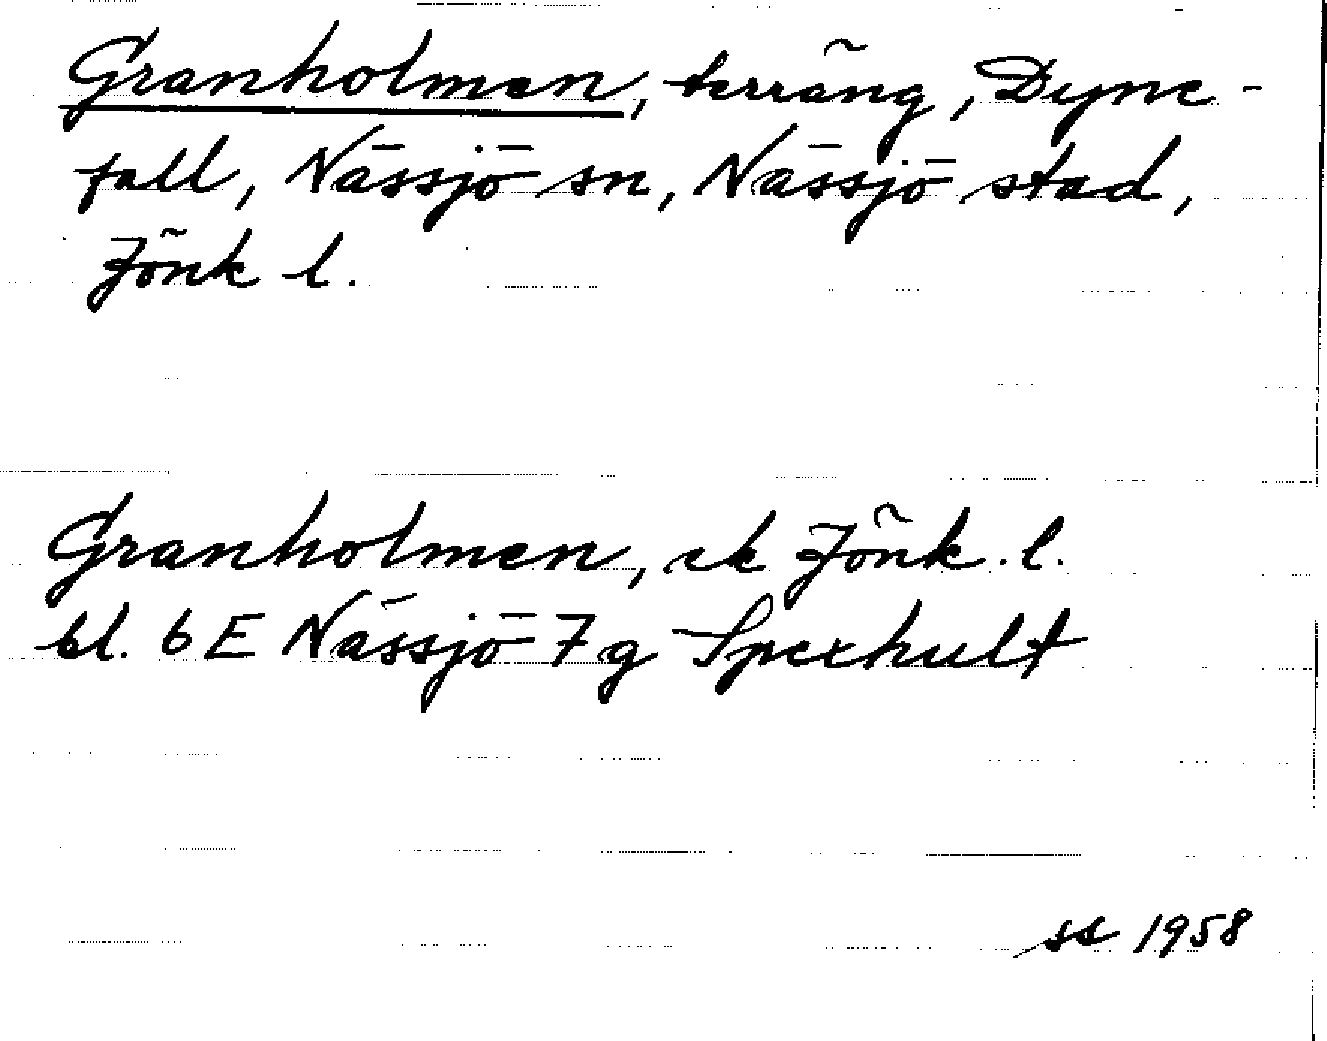 Granholmen, terräng, Dyne-
fall, Nässjö sn, Nässjö stad,
Jönk l.
Granholmen, ek Jönk. l.
bl. 6 E Nässjö 7 g Spexhult
ss 1958